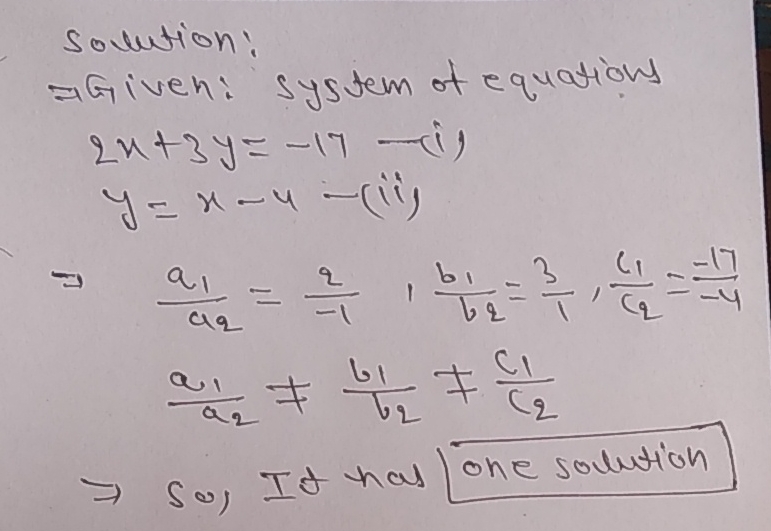 Solution:
⇒ Given: system of equations
2x+3y = -17 —(i)
y = x-4 —(ii)
⇒ a1/a2 = 2/-1 , b1/b2 = 3/1 , c1/c2 = -17/-4
a1/a2 ≠ b1/b2 ≠ c1/c2
⇒ So, It has one solution